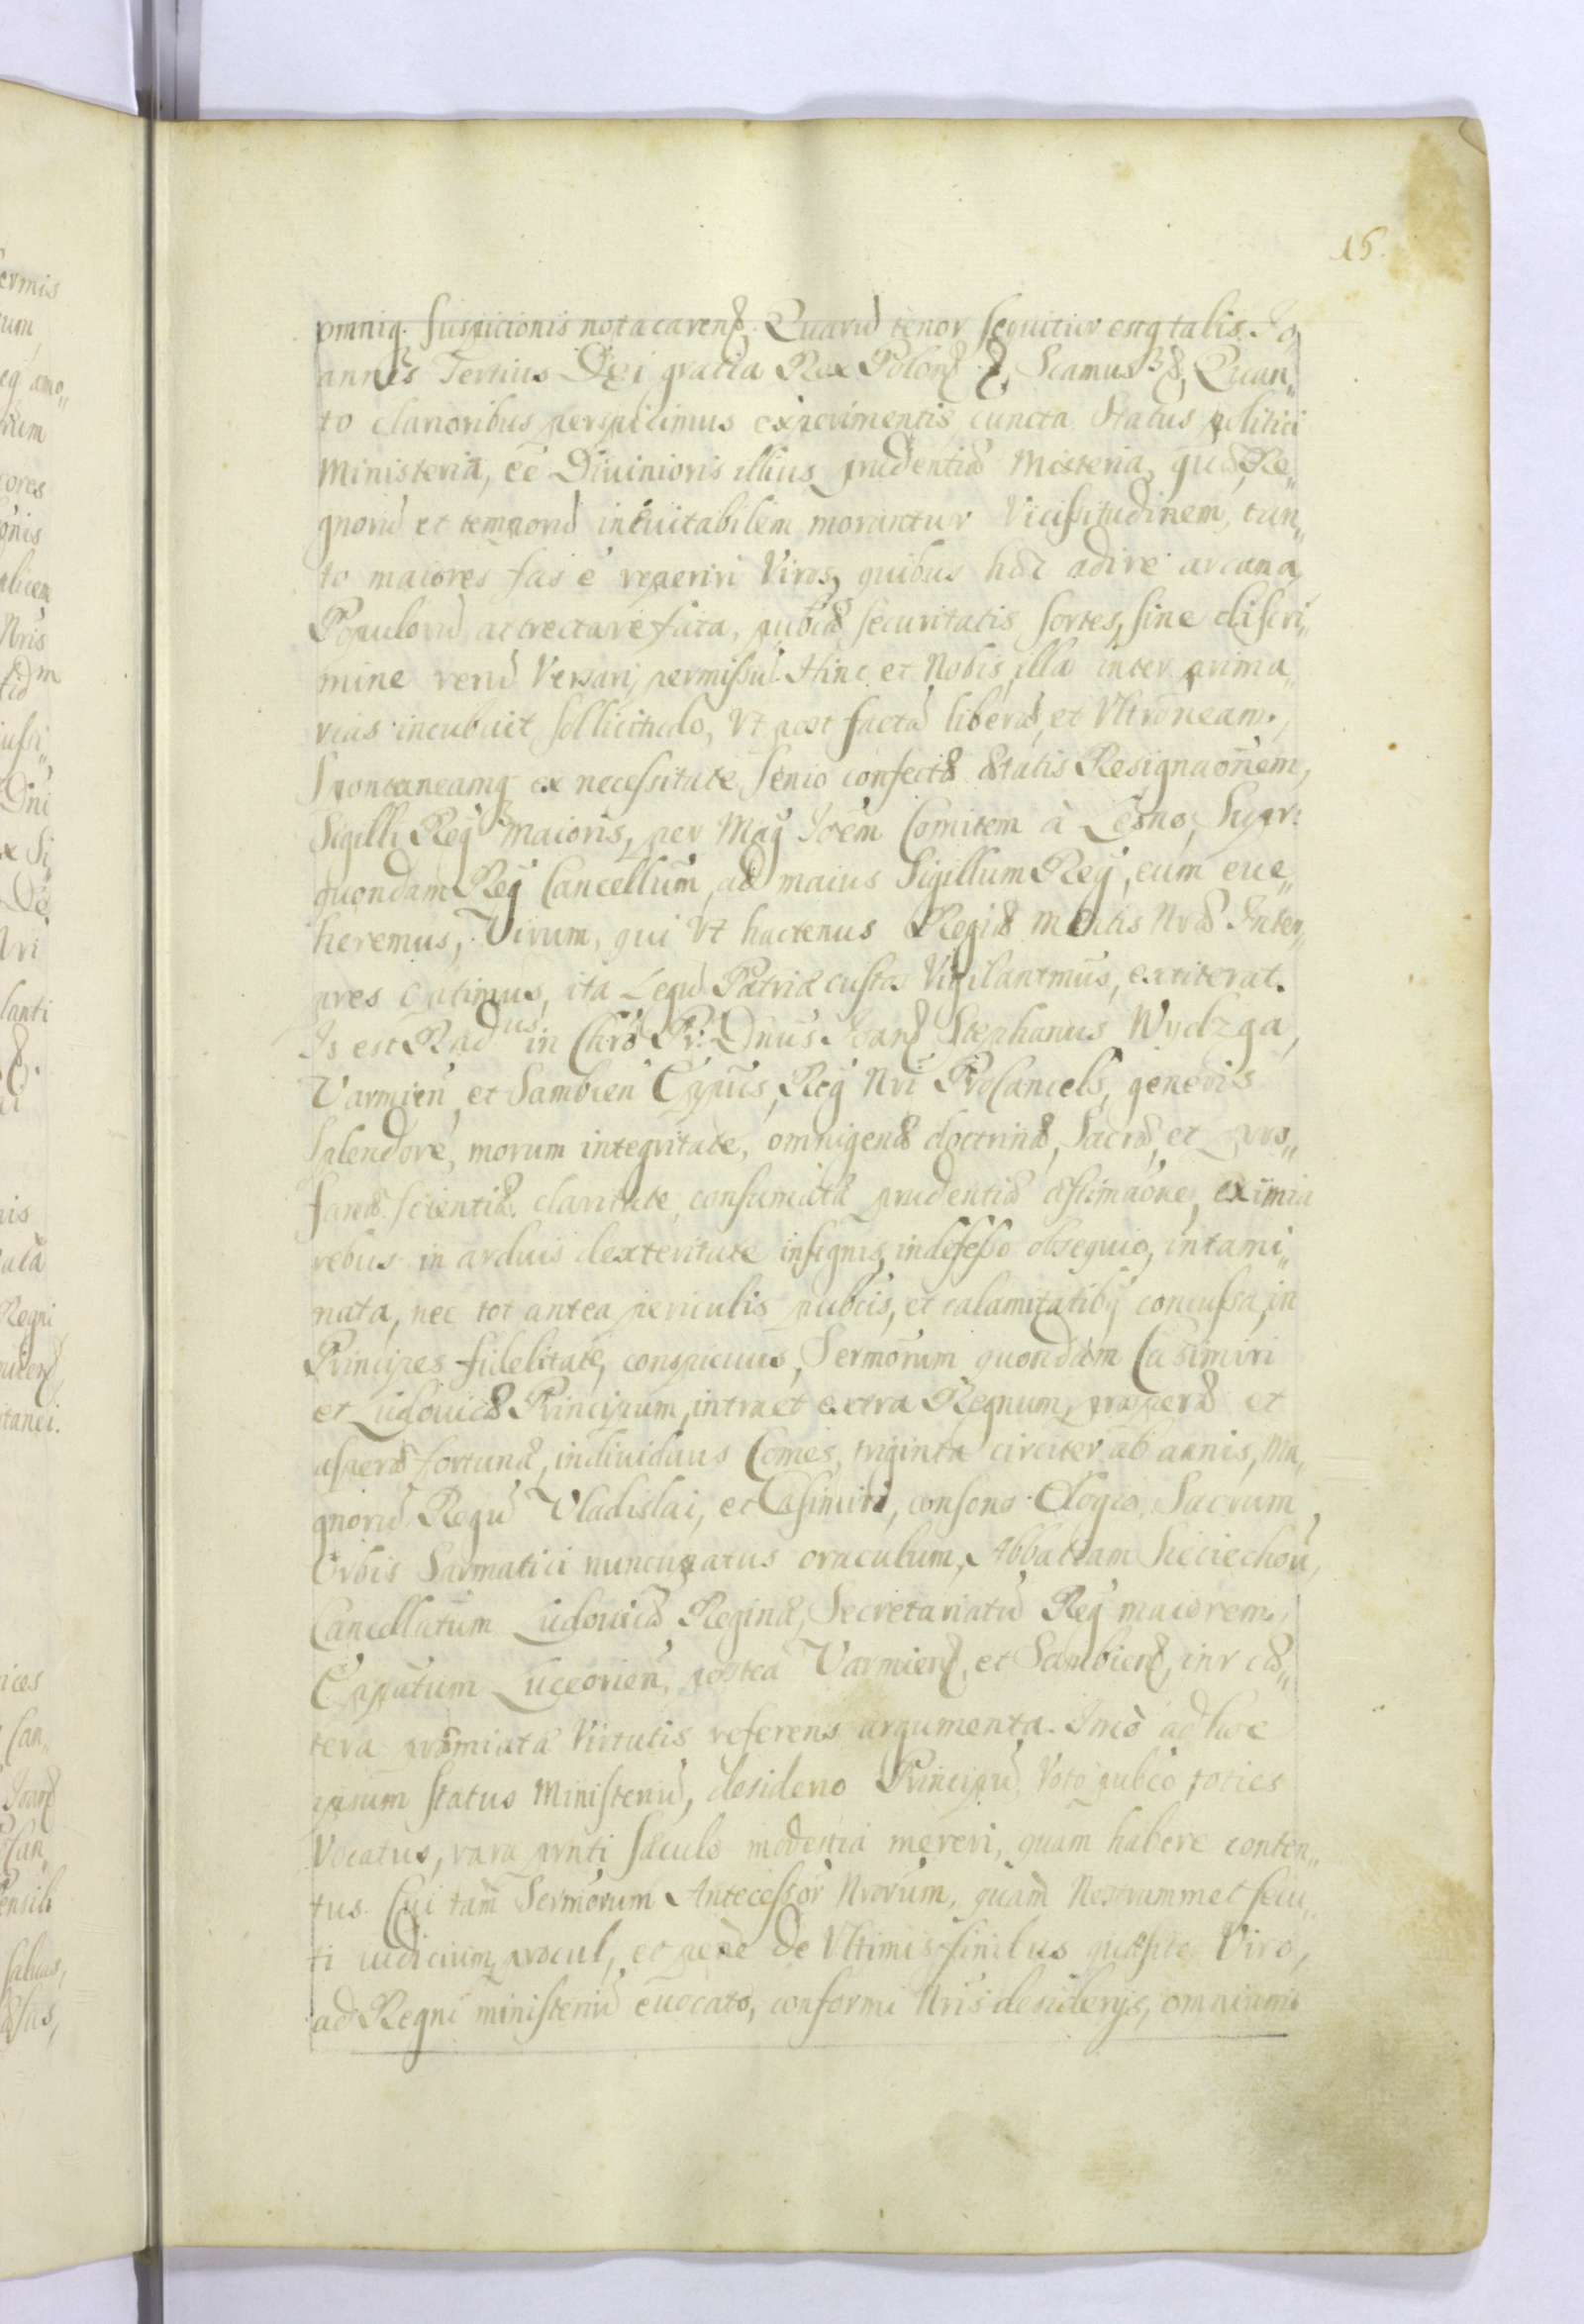 15.
omniq. suspicionis nota carens. Quarũ tenor sequitur estq talis. Jo„
annes Tertius Dei gratia Rex Polon: &, Sciamus &, Quan„
to clarioribus perspicimus experimentis cuncta Status politici
Ministeria, eẽ Divinioris illius prudentiæ Misteria, quæ Re„
gnorũ et temporũ inevitabilem morantur Vicissitudinem, tan„
to maiores fas ẽ reperiri Viros, quibus hæc adire arcana,
Populorũ attrectare fata, pubcæ securitatis sortes, sine discri„
mine rerũ Versarij permissũ. Hinc et Nobis illa inter prima„
rias incubuit sollicitudo, Vt post factã liberã, et Vltroneam,
Spontaneamq ex necessitate senio confectæ ætatis Resignaõnem,
Sigilli Reg maioris, per Mag Joẽm Comitem à Lesno, Supr:
quondam Reg Cancellum, ad maius Sigillum Reg, eum eue„
heremus, Virum, qui Vt hactenus Regiæ mentis Nræ Inter„
pres optimus, ita Legũ Patriæ custos Vigilantmus, extiterat.
Is est Rndus in Chro Pr: Dnus Joans Stephanus Wydzga,
Varmien et Sambien Eppus, Reg Nri ProCancels, generis
splendore, morum integritate, omnigenæ doctrinæ, Sacræ, et pro„
fanæ scientiæ claritate, consumatæ prudentiæ æstimaõne, eximia
rebus in arduis dexteritate insignis, indefesso obsequio, intami„
nata, nec tot antea periculis pubcis, et calamitatibq concussa, in
Principes fidelitate, conspicuus, Sermorum quondam Casimiri
et Ludovicæ Principum, intra et extra Regnum, prosperæ et
asperæ fortunæ, individuus Comes, triginta circiter ab annis, Ma„
gnorũ Regũ Vladislai, et Casimiri, consono Elogio, Sacrum
Orbis Sarmatici nuncupatus oraculum, Abbatiam Sieciechou,
Cancellatum Ludovicæ Reginæ, Secretariatũ Reg maiorem,
Eppatum Luceorien, postea Varmiens, et Sambiens, inr cæ„
tera præmiata Virtutis referens argumenta. Imò ad hoc
ipsum status Ministeriũ, desiderio Principũ, Voto pubco toties
Vocatus, rara prnti sæculo modestia mereri, quàm habere conten„
tus. Cui tam Sermorum Antecessor Nrorum, quàm Nostrummet secu„
ti iudicium, procul, et penè de Vltimis finibus quæsito Viro,
ad Regni ministeriũ evocato, conformi Nris desiderijs, omnium